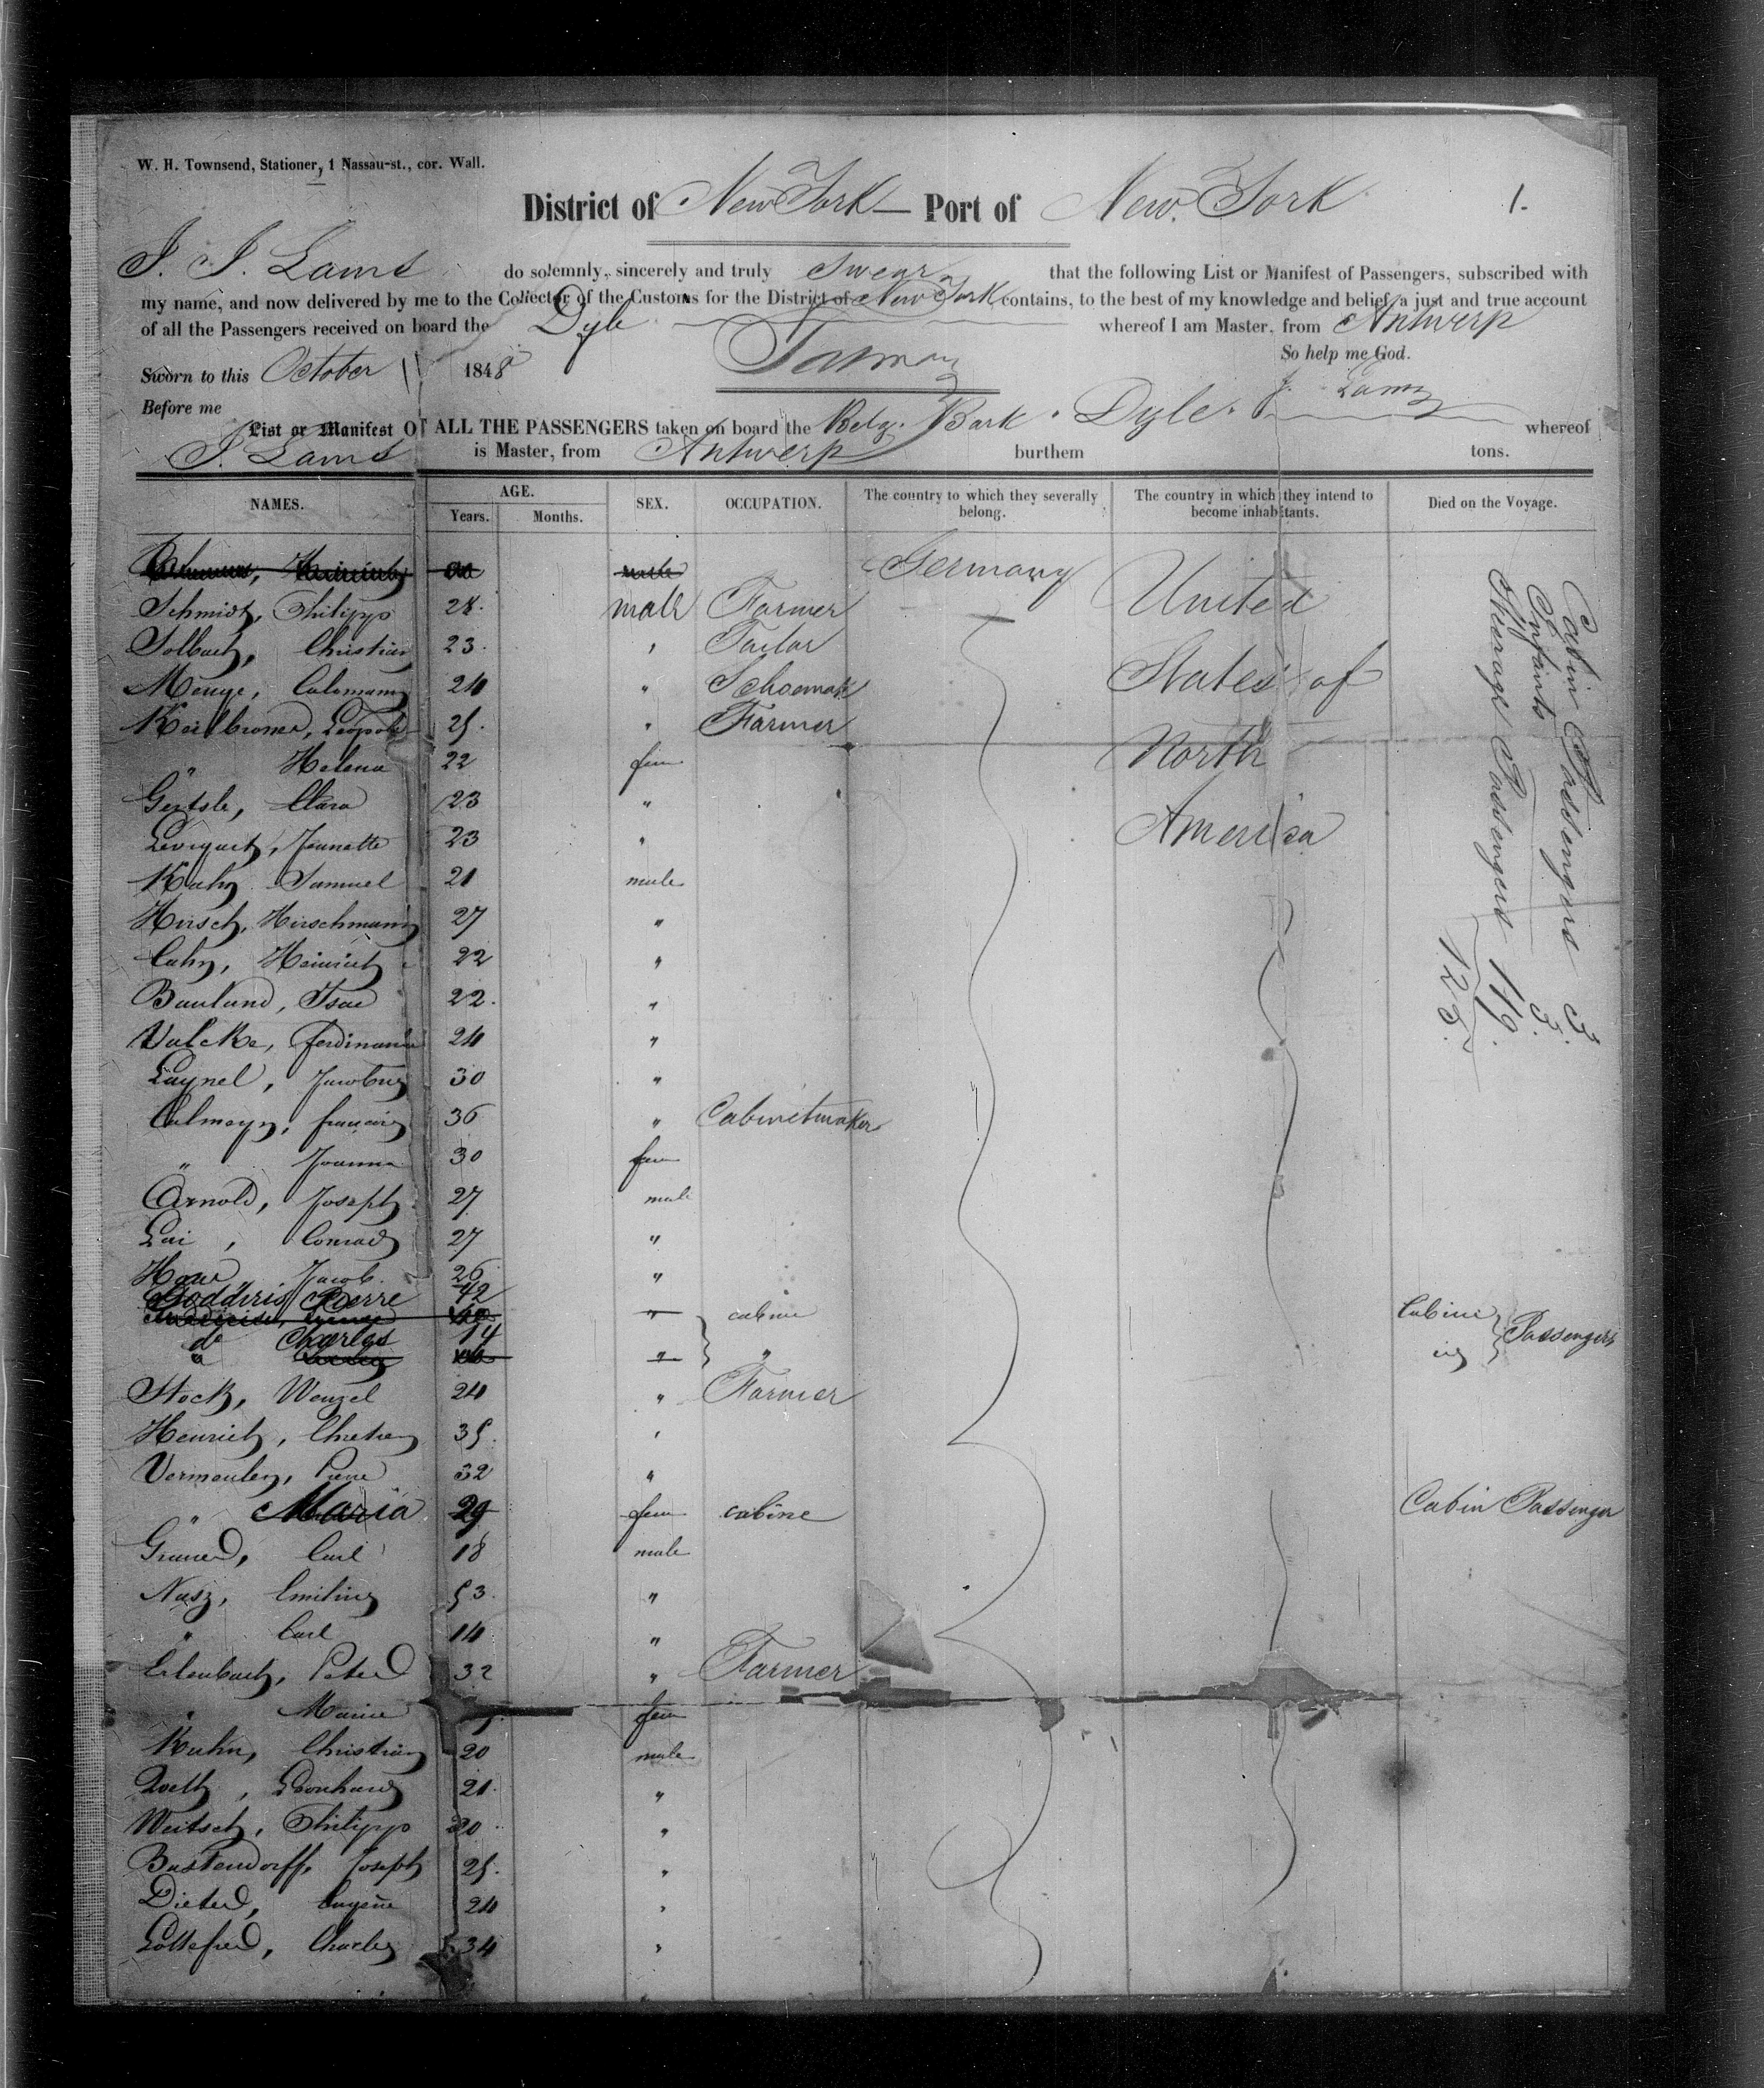 W. H. Townsend, Stationer, 1 Nassau-st., cor. Wall.
District of New York — Port of New York 1.
I, J. Lams do solemnly, sincerely and truly Swear that the following List or Manifest of Passengers, subscribed with
my name, and now delivered by me to the Collector of the Customs for the District of New York contains, to the best of my knowledge and belief, a just and true account
of all the Passengers received on board the Dyle whereof I am Master, from Antwerp
So help me God.
Sworn to this October 11 1848
J. Lams
Before me
List or Manifest OF ALL THE PASSENGERS taken on board the Belg. Bark Dyle. whereof
J. Lams is Master, from Antwerp burthem tons.
NAMES. AGE. Years. Months. SEX. OCCUPATION. The country to which they severally belong. The country in which they intend to become inhabitants. Died on the Voyage.
male Germany United
Schmidt, Philipp 28. male Farmer
Solbach, Christian 23. " Taylor
Menge, 24 " Schoemak States of
Heilbroner, Leopold 25. " Farmer
" Helena 22 fem North
Clara 23 "
Jeannette 23 " America
Kahn Samuel 21 male
Hirsch, Hirschmann 27 "
Cahn, Heinrich 22 "
Bauland, Isac 22. "
Valcke, Ferdinand 24 "
Laynel, Jacobus 30 "
Calmeyn, Francois 36 " Cabinetmaker
" Joanna 30 fem
Arnold, Joseph 27 male
Lai, Conrad 27 "
Jacob. 26 "
Dodderis Pierre 42 " cabine Cabine Passengers
do Charles 14 " "
Stock, Wenzel 24 " Farmer
Henrich, Chretien 35. "
Vermeulen, Pierre 32 "
" Maria 29 fem cabine Cabin Passenger
Carl 18 male
Nasz, 53. "
" Carl 14 "
Erlenbach, Peter 32 " Farmer
" Marie fem
Kuhn, Christian 20 male
Leonhard 21. "
Weitsch, Philipp 20 "
Bastendorff, Joseph 25. "
Dieter, Eugene 24 "
Charles 34 "
Cabin Passengers 3
Infants 3.
Steerage Passengers 119.
125.